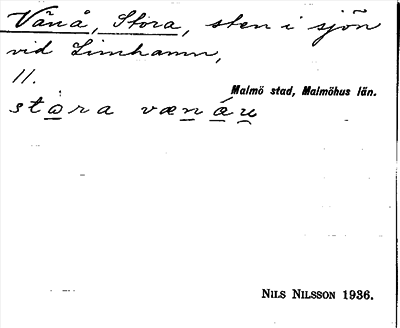 Vänå, Stora, sten i sjön
vid Limhamn,
11.
Malmö stad, Malmöhus län.
stọra vænáu̯
NILS NILSSON 1936.